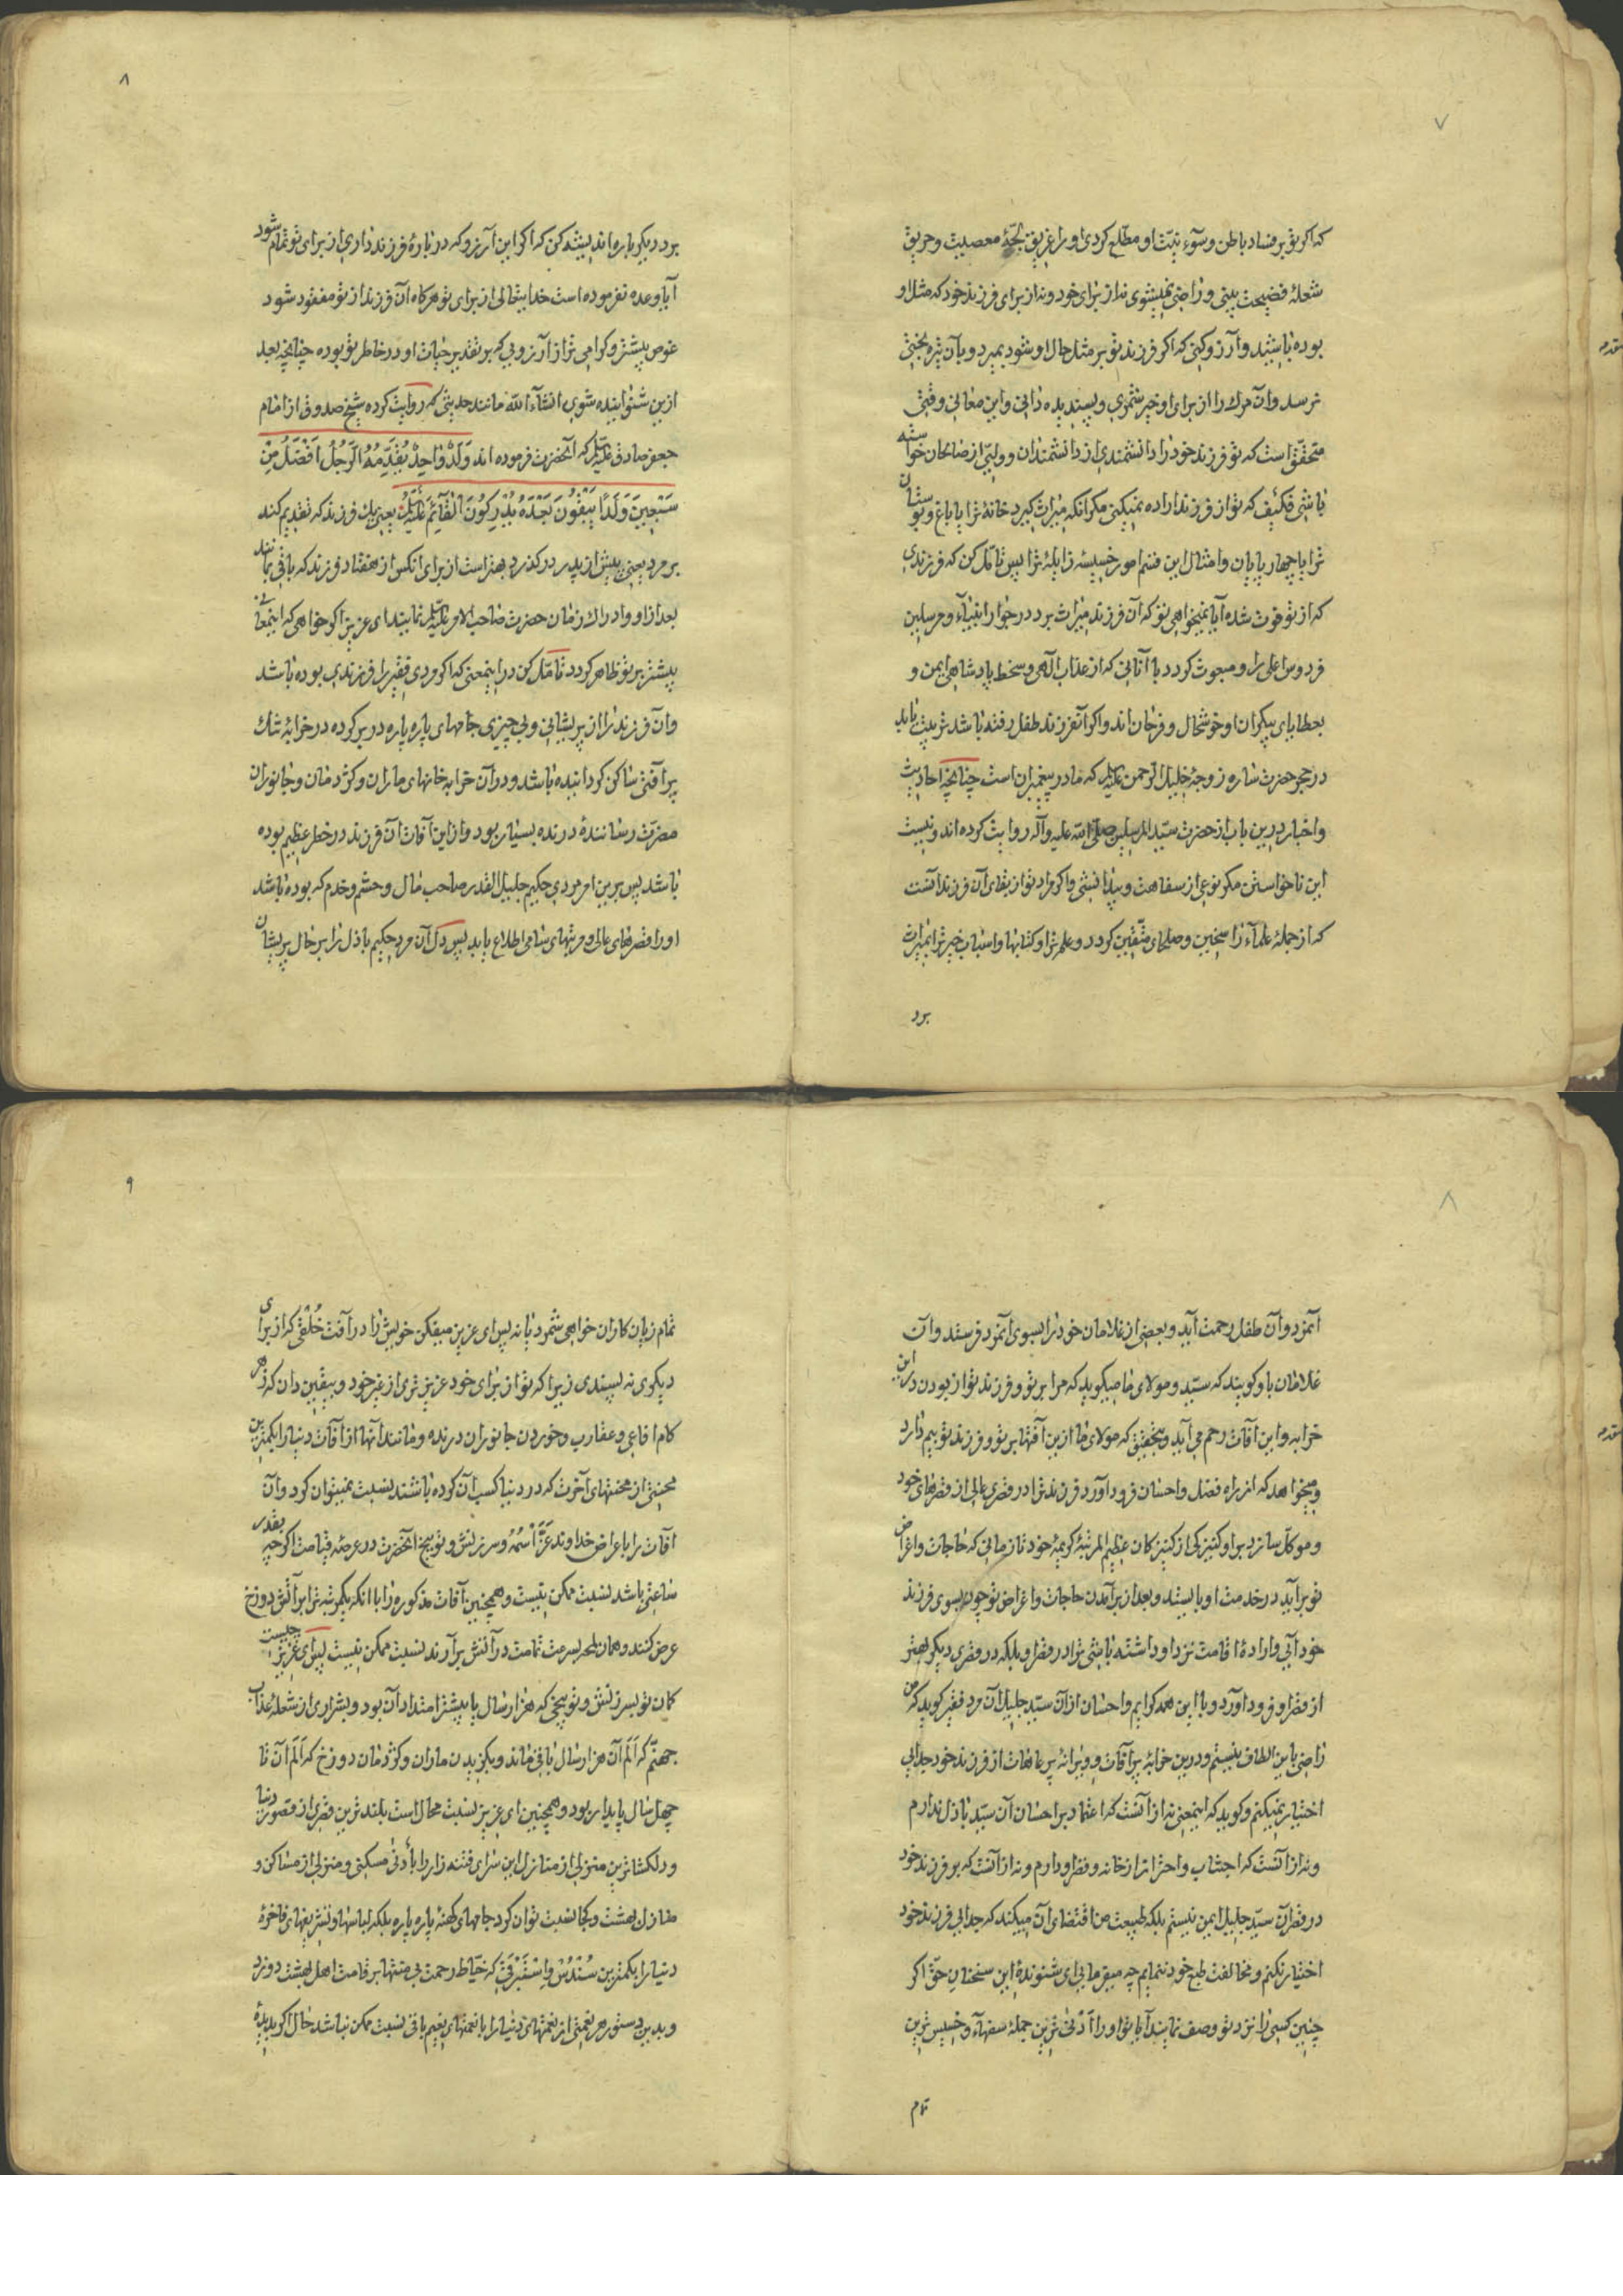 ۷
که اگر تو بر فساد باطن و سوء نیّت او مطّلع گردی او را غریق لجّهٔ معصیت و حریق
شعلهٔ فضیحت بینی و راضی نمیشوی نه از برای خود و نه از برای فرزند خود که مثل او
بوده باشید و آرزو کنی که اگر فرزند تو بر مثل حال او شود بمیرد و بآن تیره بختی
نرسد و آن مرك را از برای او خیر شمری و پسندیده دانی و این معانی وقتی
متحقّق است که تو فرزند خود را دانشمندی از دانشمندان و ولیّی از صالحان خواسته
باشی فکیف که تو از فرزند اراده نمیکنی مکر آنکه میراث گیرد خانهٔ ترا یا باغ و بوستان
ترا یا چهار پایان و امثال این قسم امور خسیسهٔ زایلهٔ ترا پس تأمّل کن که فرزندی
که از تو فوت شده آیا نمیخواهی تو که آن فرزند میراث برد در جوار انبیاء و مرسلین
فردوس اعلی را و مبعوث کردد با آنانی که از عذاب آلهی و سخط پادشاهی ایمن و
بعطایای بیکران او خوشحال و فرحان اند و اکر آنفرزند طفل رفته باشد تربیت یابد
در حجر حضرت ساره زوجهٔ خلیل الرحمن علیه السلم که مادر پیغمبران است چنانچه احادیث
و اخبار درین باب از حضرت سیّد المرسلین صلّی الله علیه و آله روایت کرده اند و نیست
این نا خواستن مکر نوعی از سفاهت و بیدانشی و اکر مراد تو از بقای آن فرزند آنست
که از جملهٔ علمآء راسخین و صلحای متّقین کردد و علم ترا و کتابها و اسباب خیر ترا بمیراث
برد
۸
برد دیکر باره اندیشه کن که اکر این آرزو که در بارهٔ فرزند داری از برای تو تمام شود
آیا وعده نفرموده است خدایتعالی از برای تو هرکاه آن فرزند از تو مفقود شود
عوض بیشتر و کرامی تر از آرزویی که بر تقدیر حیات او در خاطر تو بوده چنانچه بعد
ازین شنوانیده شوی انشآء الله مانند حدیثی که روایت کرده شیخ صدوق از امام
جعفر صادق علیه السلم که آنحضرت فرموده اند وَلَدٌ وٰاحِدٌ یُقَدِّمُهُ الرَّجُلُ اَفْضَلُ مِنْ
سَبْعِینَ وَلَدًا یَبْقُونَ بَعْدَهُ یُدْرِکُونَ الْقٰآئِمَ عَلَیْهِ السَّلٰم یعنی یك فرزند که تقدیم کند
بر مرد یعنی پیش از پدر در گذرد بهتر است از برای آنکس از هفتاد فرزند که باقی بمانند
بعد از او و ادراك زمان حضرت صاحب الامر علیه السلم نمایند ای عزیز اکر خواهی که اینمعنی
بیشتر بر تو ظاهر کردد تأمّل کن در اینمعنی که اکر مردی فقیر را فرزندی بوده باشد
و آن فرزند را از پریشانی و بی چیزی جامهای پاره پاره در بر کرده در خرابهٔ تنك
پر آفتی ساکن کردانیده باشد و در آن خرابه خانهای ماران و کژدمان و جانوران
مضرّت رسانندهٔ درنده بسیار بود و از این آفات آن فرزند در خطر عظیم بوده
باشد پس برین امر مردی حکیم جلیل القدر صاحب مال و حشم و خدم که بوده باشد
او را قصرهای عالی و مرتبهای سامی اطلاع یابد پس دل آن مرد حکیم باذل را بر حال پریشان
۸
آنمرد و آن طفل رحمت آید و بعضی از غلامان خود را بسوی آنمرد فرستد و آن
غلامان باو کویند که سیّد و مولای ما میکوید که مرا بر تو و فرزند تو از بودن در این
خرابه و این آفات رحم می آید و بتحقیق که مولای ما ازین آفتها بر تو و فرزند تو بیم دارد
و میخواهد که از راه فضل و احسان فرود آورد فرزند ترا در قصری عالی از قصرهای خود
و موکّل سازد بر او کنیزکی از کنیزکان عظیم المرتبهٔ کریمهٔ خود تا زمانی که حاجات و اغراض
تو بر آید در خدمت او بایستد و بعد از برآمدن حاجات و اغراض تو چون بسوی فرزند
خود آیی و ارادهٔ اقامت نزد او داشته باشی ترا در قصر او بلکه در قصری دیکر بهتر
از قصر او فرود آورد و با این همه کرایم و احسان از آن سیّد جلیل آن مرد فقیر کوید که من
راضی باین الطاف نیستم و درین خرابهٔ پر آفات و ویرانهٔ پر عاهات از فرزند خود جدایی
اختیار نمیکنم و کوید که اینمعنی نه از آنست که اعتماد بر احسان آن سیّد باذل ندارم
و نه از آنست که اجتناب و احتراز از خانه و قصر او دارم و نه از آنست که بر فرزند خود
در قصر آن سیّد جلیل ایمن نیستم بلکه طبیعت من اقتضای آن میکند که جدایی فرزند خود
اختیار نکنم و مخالفت طبع خود ننمایم چه میفرمایی ای شنوندهٔ این سخنان حق اکر
چنین کسی را نزد تو وصف نمایند آیا تو او را اَدْنیٰ ترین جملهٔ سفهآء و خسیس ترین
تمام
۹
تمام زیان کاران خواهی شمرد یا نه پس ای عزیز میفکن خویش را در آفت خُلْقی که از برای
دیکری نه پسندی زیرا که تو از برای خود عزیز تری از غیر خود و بیقین دان که زهر
کام افاعی و عقارب و خوردن جانوران درنده و مانند آنها از آفات دنیا را بکمترین
محنتی از محنتهای آخرت که در دنیا کسب آن کرده باشند نسبت نمیتوان کرد و آن
آفات را با اعراض خداوند عَزَّ اسْمُهُ و سرزنش و توبیخ آنحضرت در عرصهٔ قیامت اکرچه بقدر
ساعتی باشد نسبت ممکن نیست و همچنین آفات مذکوره را با آنکه یکمرتبه ترا بر آتش دوزخ
عرض کنند و همان لحظه بسرعت تمامت در آتش بر آرند نسبت ممکن نیست پس ای عزیز چیست
کمان تو بسرزنش و توبیخی که هزار سال یا بیشتر امتداد آن بود و بشراری از شعلهٔ عذاب
جهنّم که اَلَم آن هزار سال باقی ماند و بکزیدن ماران و کژدمان دوزخ که اَلَم آن تا
چهل سال پایدار بود و همچنین ای عزیز نسبت محال است بلند ترین قصری از قصور دنیا
و دلکشا ترین منزلی از منازل این سرای فتنه زار را با ادنیٰ مسکنی و منزلی از مساکن و
منازل بهشت و کجا نسبت توان کرد جامهای کهنهٔ پاره پاره بلکه لباسها و تشریفهای فاخرهٔ
دنیا را بکمترین سُنْدُسْ وَ اِسْتَبْرَقی که خیّاط رحمت بی منتها بر قامت اهل بهشت دوزد
و بدین دستور هر نعمتی از نعمتهای دنیا را با نعمتهای نعیم باقی نسبت ممکن نباشد حال اکر بدیدهٔ